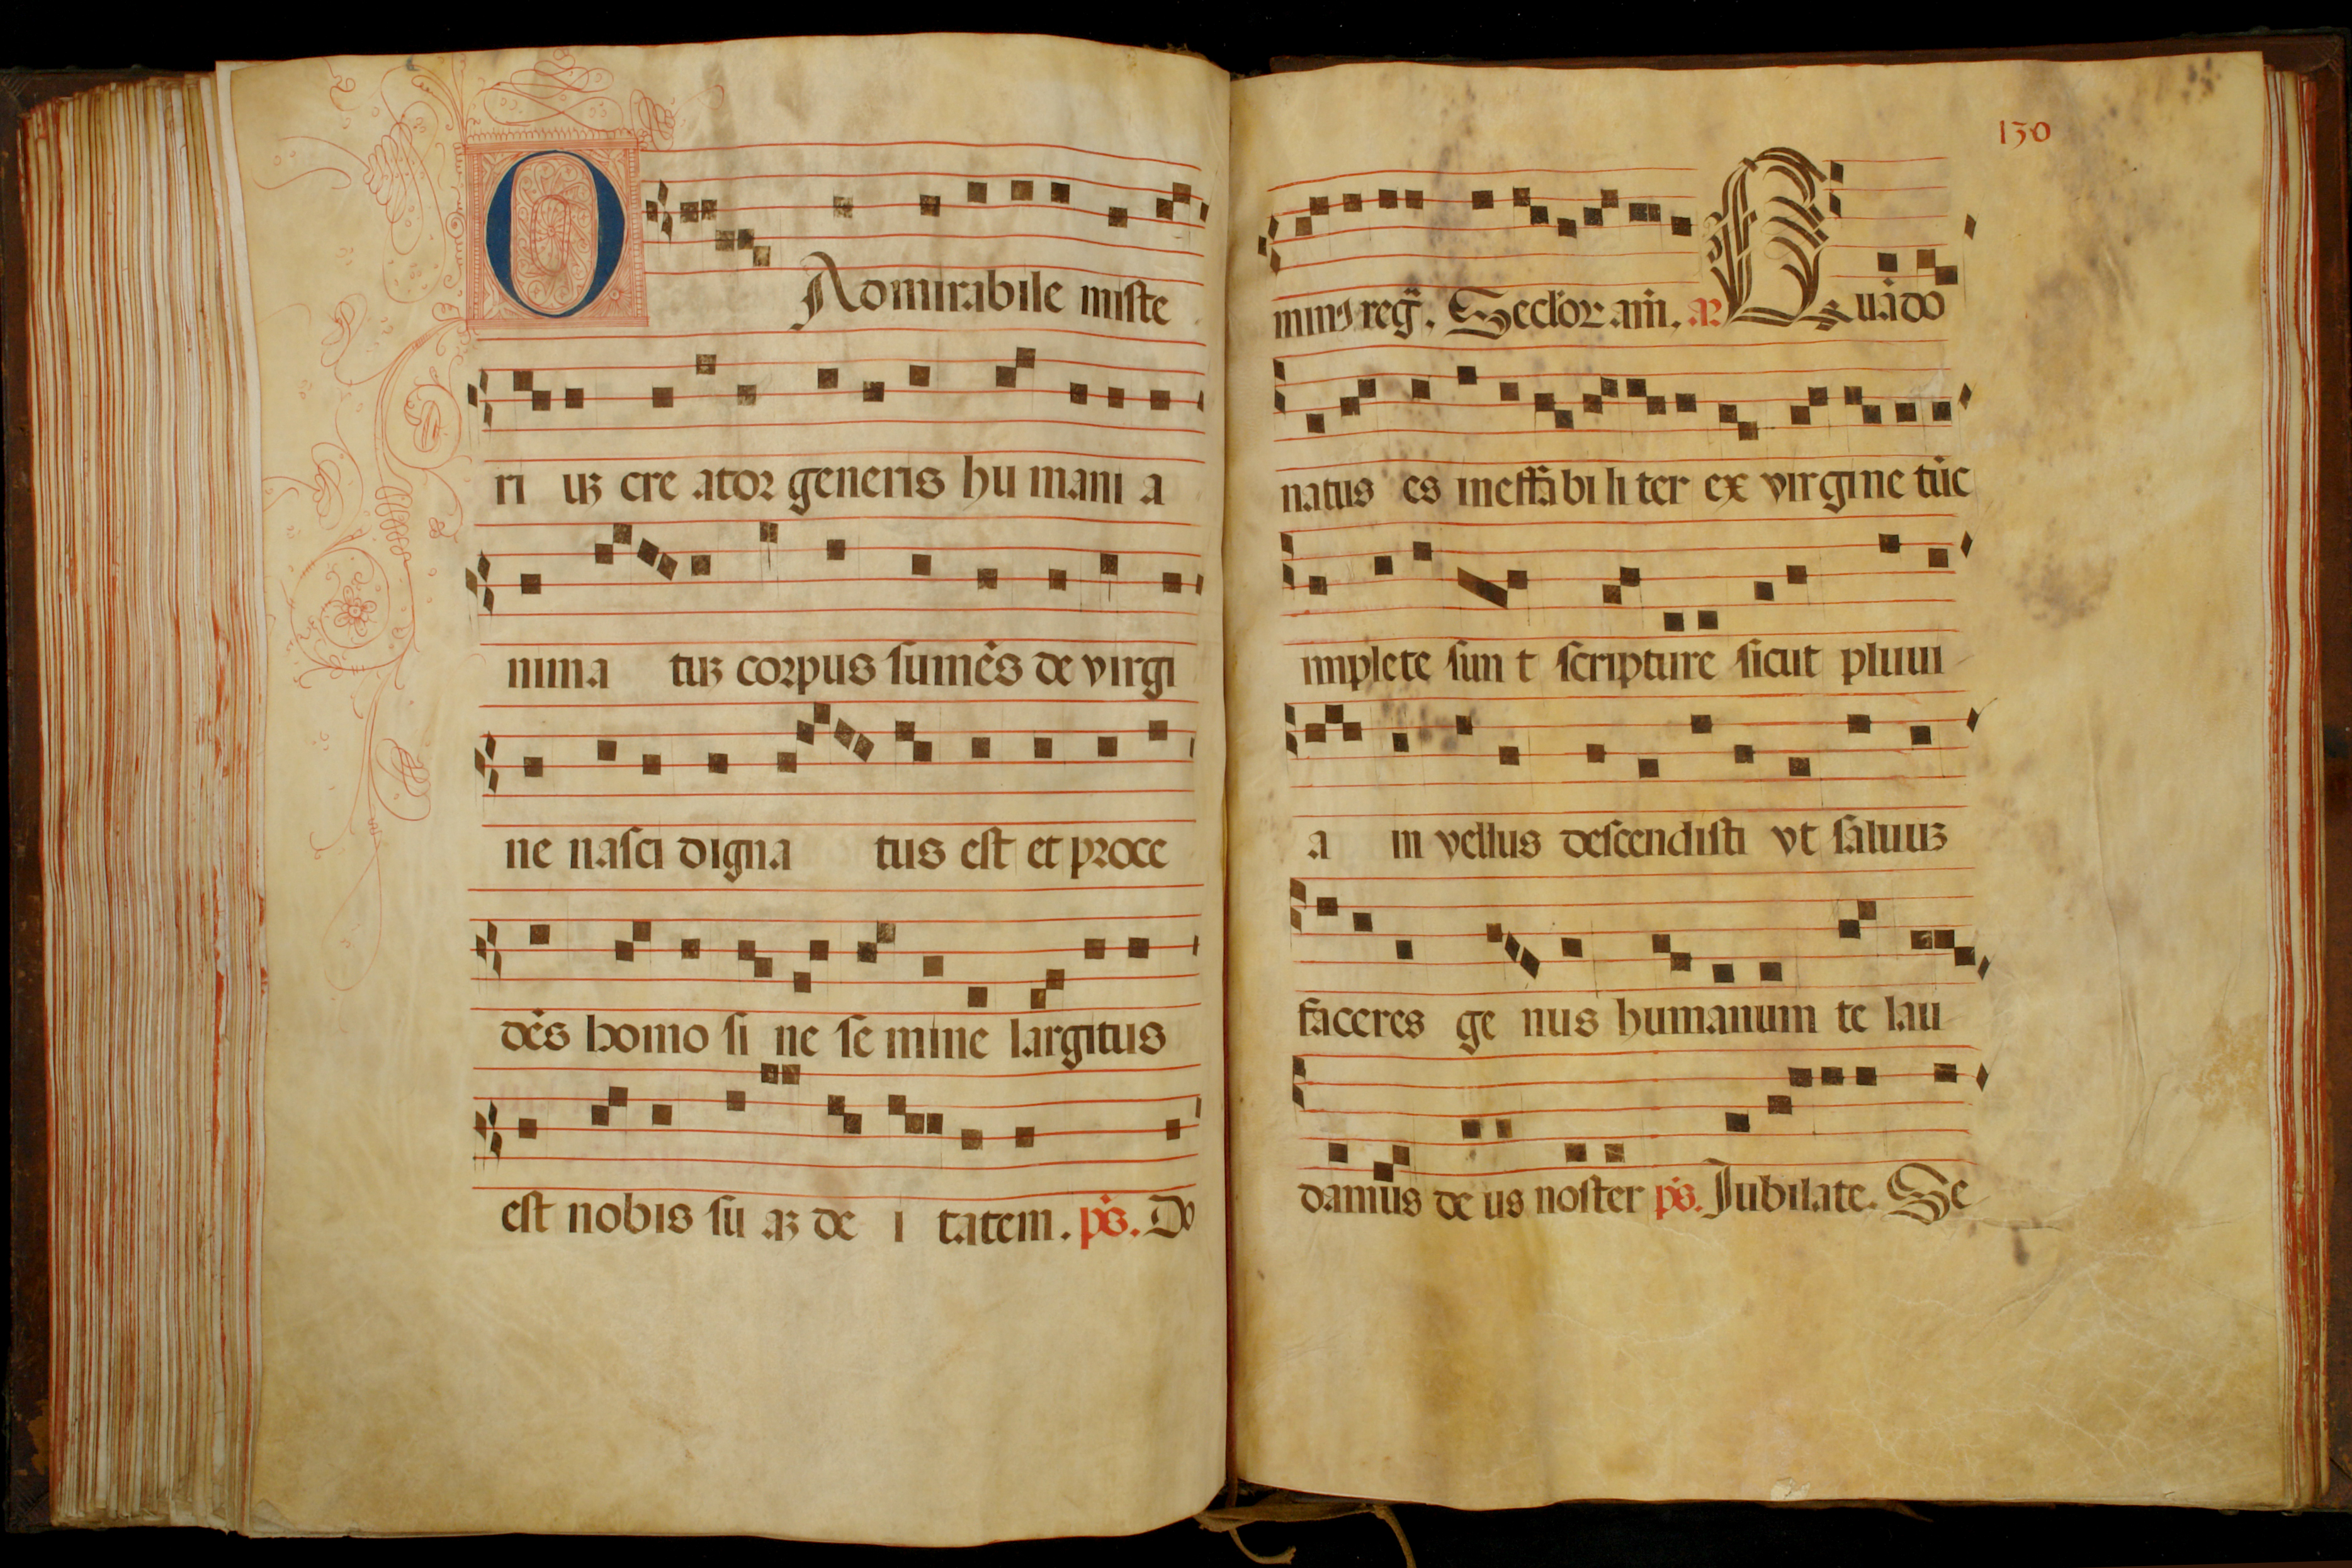 O Admirabile miste
ri uꝫ cre ator generis hu mani a
nima tuꝫ corpus sumēs de virgi
ne nasci digna tus est et proce
dēs homo si ne se mine largitus
est nobis su aꝫ de i tatem. ps̄. Do
130
minꝰ reḡ. Secl'or am̄. añ Quādo
natus es ineffabi li ter ex virgine tūc
implete sun t scripture sicut pluui
a in vellus descendisti vt saluuꝫ
faceres ge nus humanum te lau
damus de us noster ps̄. Iubilate. Se